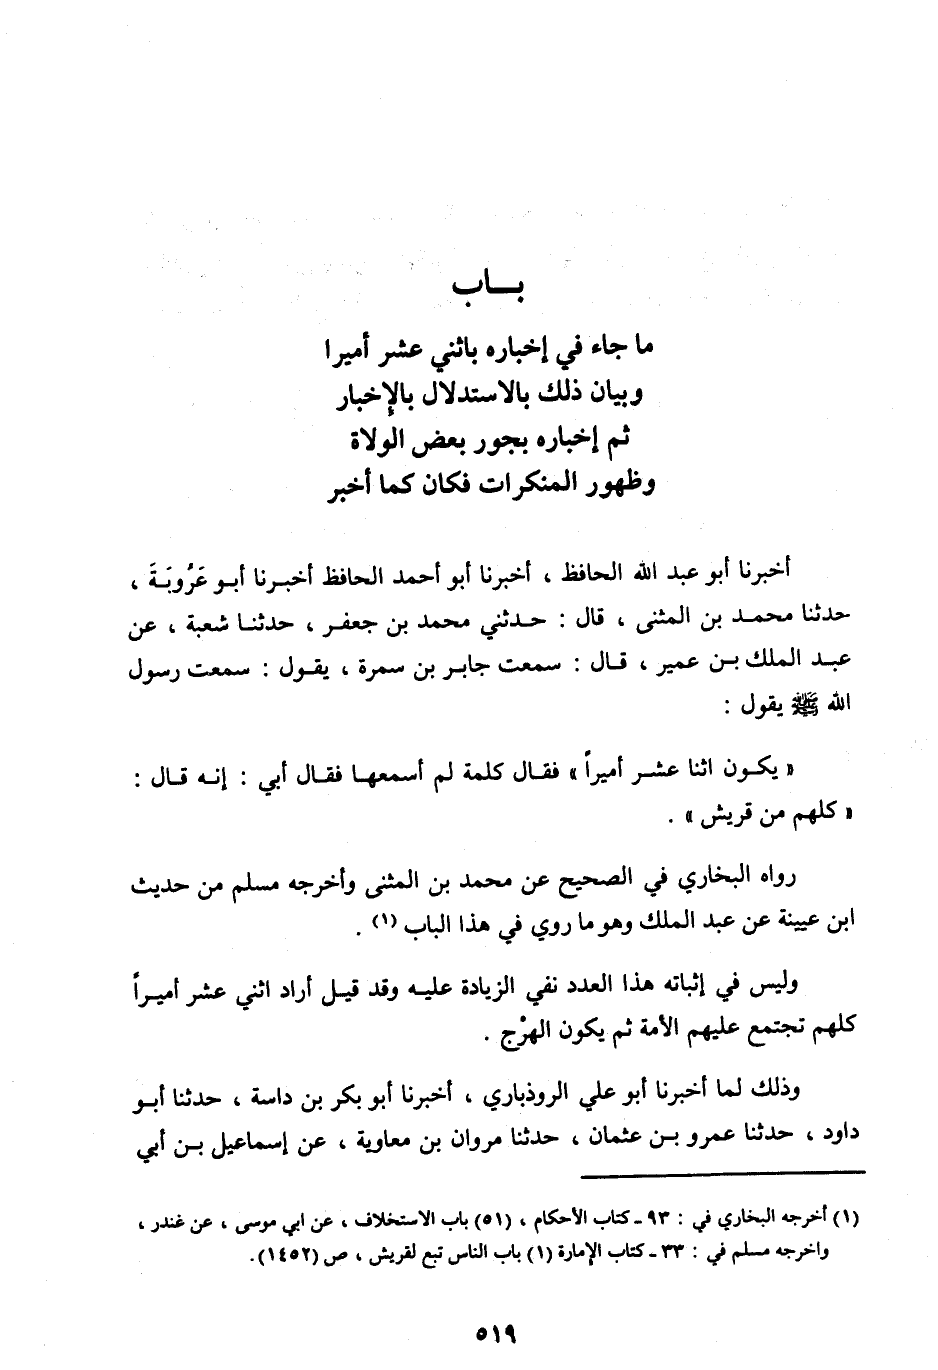 بـــاب
ما جاء في إخباره باثني عشر أميرا
وبيان ذلك بالاستدلال بالإخبار
ثم إخباره بجور بعض الولاة
وظهور المنكرات فكان كما أخبر
أخبرنا أبو عبد الله الحافظ ، أخبرنا أبو أحمد الحافظ أخبـرنا أبـو عَرُوبَةَ ،
حدثنا محمـد بن المثنى ، قال : حـدثني محمد بن جعفـر ، حدثنـا شعبة ، عن
عبـد الملك بـن عمير ، قـال : سمعت جابـر بن سمرة ، يقـول : سمعت رسول
الله ﷺ يقول :
« يكـون اثنا عشـر أميراً » فقـال كلمة لم أسمعهـا فقـال أبي : إنـه قـال :
« كلهم من قريش » .
رواه البخاري في الصحيح عن محمد بن المثنى وأخرجه مسلم من حديث
ابن عيينة عن عبد الملك وهو ما روي في هذا الباب (١) .
وليس في إثباته هذا العدد نفي الزيادة عليـه وقد قيـل أراد اثني عشر أميـراً
كلهم تجتمع عليهم الأمة ثم يكون الهرْج .
وذلك لما أخبرنا أبو علي الروذباري ، أخبرنا أبو بكر بن داسة ، حدثنا أبـو
داود ، حدثنا عمرو بـن عثمان ، حدثنا مروان بن معاوية ، عن إسماعيل بـن أبي
(١) أخرجه البخاري في : ٩٣ ـ كتاب الأحكام ، (٥١) باب الاستخلاف ، عن ابي موسى ، عن غندر ،
واخرجه مسلم في : ٣٣ ـ كتاب الإمارة (١) باب الناس تبع لقريش ، ص (١٤٥٢).
٥١٩